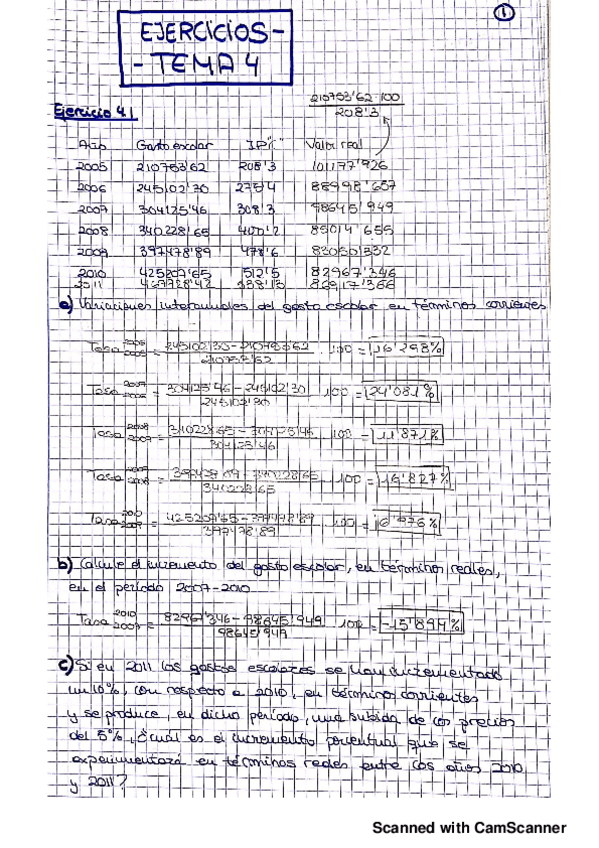 1
EJERCICIOS-
-TEMA 4
210753'62·100
208'3
Ejercicio 4.1
Año Gasto escolar IPC Valor real
2005 210753'62 208'3 101177'926
2006 245102'30 275'4 88998'657
2007 304125'46 308'3 98645'949
2008 340228'65 400'2 85014'655
2009 397478'89 478'6 83050'332
2010 425209'65 512'5 82967'346
2011 467728'42 82917'366
a) Variaciones interanuales del gasto escolar en términos corrientes
Tasa 2006 2005 = 245102'30-210753'62 / 210753'62 · 100 = 16'298%
Tasa 2007 2006 = 304125'46-245102'30 / 245102'30 · 100 = 24'081%
Tasa 2008 2007 = 304125'46 · 100 = 11'871%
Tasa 2009 2008 = 340228'65 · 100 = 16'827%
Tasa 2010 2009 = 425209'65-397478'89 / 397478'89 · 100 = 6'976%
b) Calcule el incremento del gasto escolar, en términos reales,
en el período 2007-2010
Tasa 2010 2007 = 82967'346-98645'949 / 98645'949 · 100 = -15'894%
c) Si en 2011 los gastos escolares se han incrementado
un 10%, con respecto a 2010, en términos corrientes
y se produce, en dicho período, una subida de los precios
del 5%, ¿cuál es el incremento porcentual que se
experimentará en términos reales entre los años 2010
y 2011?
Scanned with CamScanner